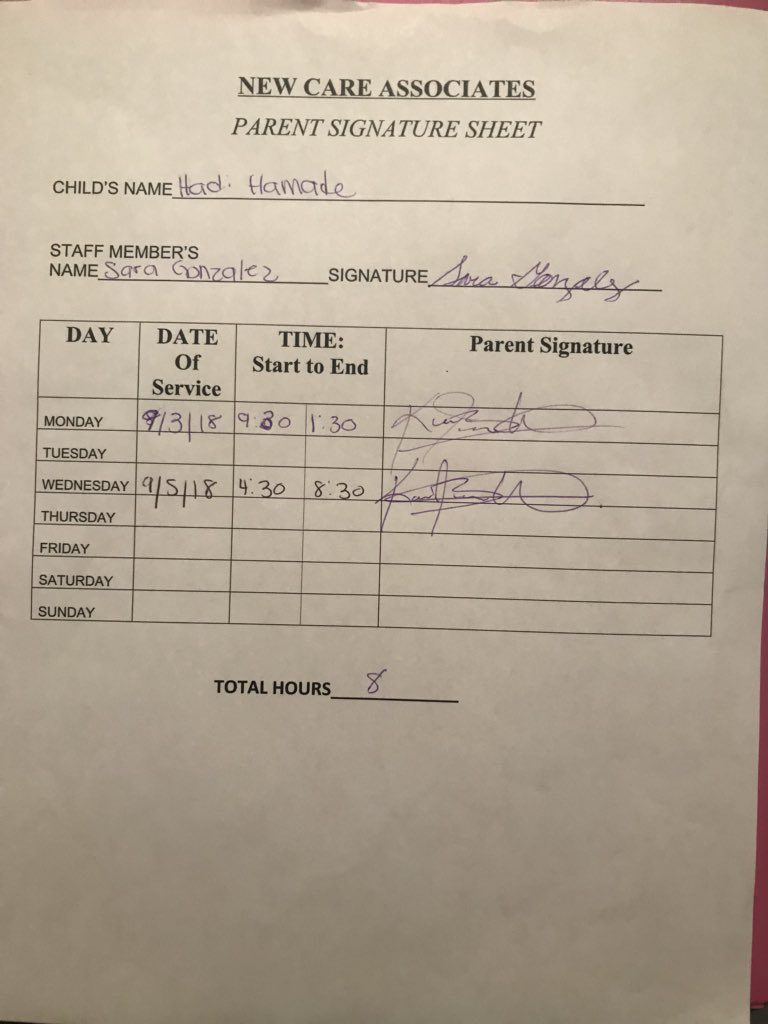 NEW CARE ASSOCIATES
PARENT SIGNATURE SHEET
CHILD'S NAME Hadi Hamade
STAFF MEMBER'S
NAME Sara Gonzalez SIGNATURE Sara Gonzalez
DAY DATE Of Service TIME: Start to End Parent Signature
MONDAY 9/3/18 9:30 1:30
TUESDAY
WEDNESDAY 9/5/18 4:30 8:30
THURSDAY
FRIDAY
SATURDAY
SUNDAY
TOTAL HOURS 8